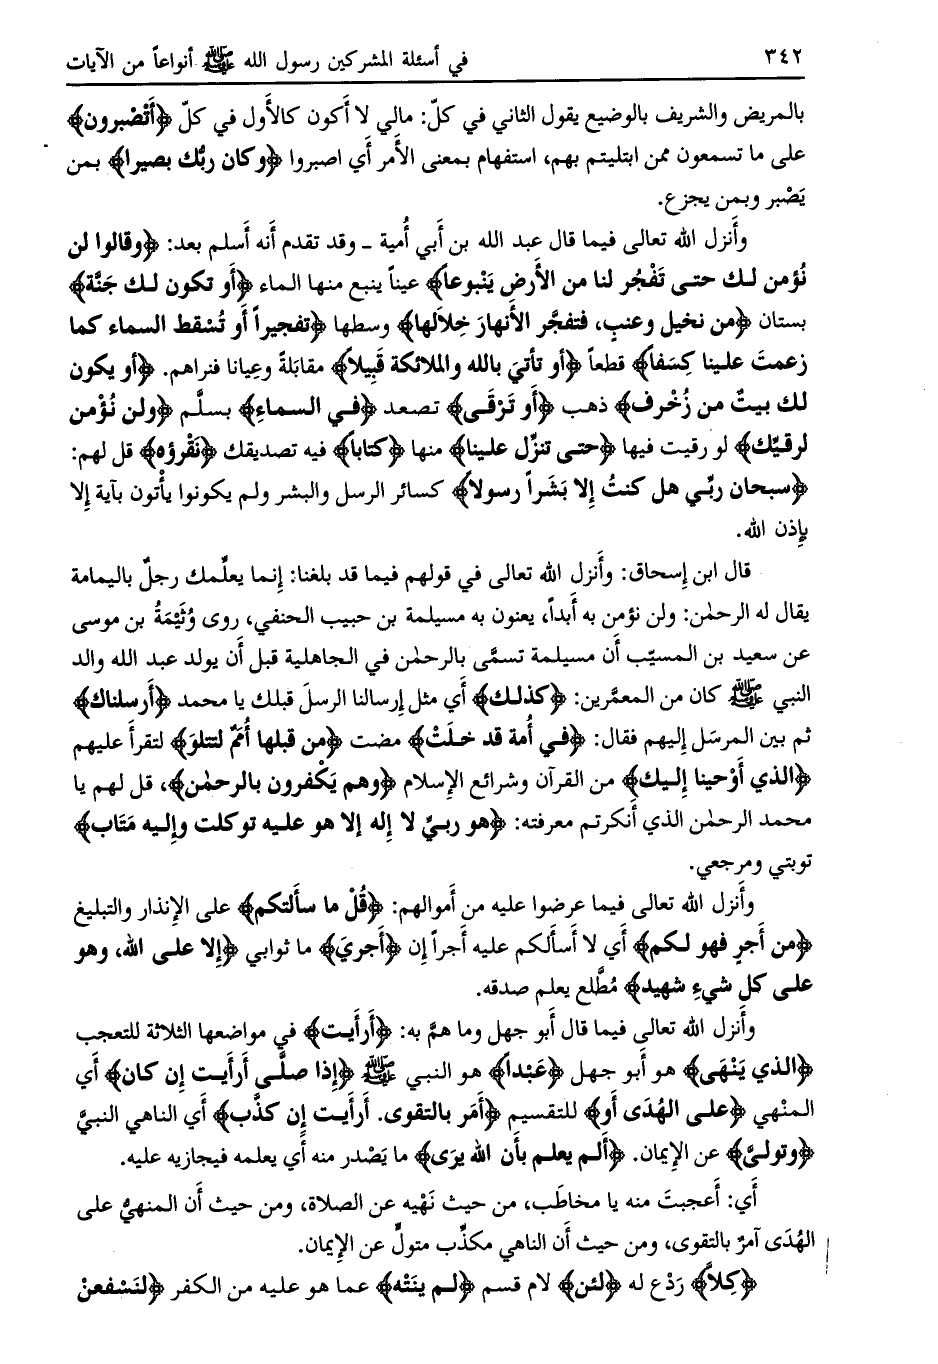 ٣٤٢ في أسئلة المشركين رسول الله ﷺ أنواعاً من الآيات
بالمريض والشريف بالوضيع يقول الثاني في كلّ: مالي لا أكون كالأول في كلّ ﴿أَتَصْبرون﴾
على ما تسمعون ممن ابتليتم بهم، استفهام بمعنى الأمر أي اصبروا ﴿وكان ربُّك بصيرا﴾ بمن
يَصْبر وبمن يجزع.
وأَنزل الله تعالى فيما قال عبد الله بن أَبي أُمية ـ وقد تقدم أَنه أَسلم بعد: ﴿وقالوا لن
نُؤمن لـك حتـى تَفْجُر لنا من الأَرض يَنْبوعاً﴾ عيناً ينبع منها الماء ﴿أَو تكون لـك جَنَّة﴾
بستان ﴿من نخيل وعنبٍ، فتفجَّر الأَنهارَ خِلالَها﴾ وسطها ﴿تفجيراً أَو تُسْقط السماء كما
زعمتَ علـينا كِسَفاً﴾ قطعاً ﴿أَو تأتيَ بالله والملائكة قَبِيلاً﴾ مقابَلةً وعِيانا فنراهم. ﴿أَو يكون
لك بيتٌ من زُخْرف﴾ ذهب ﴿أَو تَرْقَى﴾ تصعد ﴿فـي السماءِ﴾ بسلَّم ﴿ولن نُؤْمن
لرقيِّك﴾ لو رقيت فيها ﴿حتـى تنزِّل علـينا﴾ منها ﴿كتاباً﴾ فيه تصديقك ﴿نَقْرؤه﴾ قل لهم:
﴿سبحان ربِّـي هل كنتُ إلا بَشَراً رسولاً﴾ كسائر الرسل والبشر ولم يكونوا يأتون بآية إلا
بإذن الله.
قال ابن إسحاق: وأَنزل الله تعالى في قولهم فيما قد بلغنا: إنما يعلِّمك رجلٌ باليمامة
يقال له الرحمٰن: ولن نؤمن به أَبداً، يعنون به مسيلمة بن حبيب الحنفي، روى وُثَيْمَةُ بن موسى
عن سعيد بن المسيّب أَن مسيلمة تسمَّى بالرحمٰن في الجاهلية قبل أَن يولد عبد الله والد
النبي ﷺ كان من المعمَّرين: ﴿كذلـك﴾ أي مثل إرسالنا الرسلَ قبلك يا محمد ﴿أَرسلناك﴾
ثم بين المرسَل إليهم فقال: ﴿فـي أُمة قد خـلَتْ﴾ مضت ﴿من قبلها أُمَمٌ لتتلوَ﴾ لتقرأ عليهم
﴿الذي أَوْحينا إلـيك﴾ من القرآن وشرائع الإسلام ﴿وهم يَكْفرون بالرحمٰن﴾، قل لهم يا
محمد الرحمٰن الذي أَنكرتم معرفته: ﴿هو ربـيِّ لا إله إلا هو علـيه توكلت وإلـيه مَتَاب﴾
توبتي ومرجعي.
وأَنزل الله تعالى فيما عرضوا عليه من أَموالهم: ﴿قُلْ ما سألتكم﴾ على الإنذار والتبليغ
﴿من أَجرٍ فهو لـكم﴾ أي لا أَسألكم عليه أَجراً إن ﴿أَجريَ﴾ ما ثوابي ﴿إلا علـى الله، وهو
علـى كل شيءٍ شهيد﴾ مُطَّلع يعلم صدقه.
وأَنزل الله تعالى فيما قال أَبو جهل وما همَّ به: ﴿أَرأَيـت﴾ في مواضعها الثلاثة للتعجب
﴿الذي يَنْهَى﴾ هو أَبو جهل ﴿عَبْدا﴾ هو النبي ﷺ ﴿إذا صلَّـى أَرأَيـت إن كان﴾ أَي
المنْهي ﴿علـى الهُدَى أَو﴾ للتقسيم ﴿أَمَر بالتقوى. أَرأَيـت إن كذَّب﴾ أَي الناهي النبيَّ
﴿وتولـىَّ﴾ عن الإيمان. ﴿أَلـم يعلم بأَن الله يرَى﴾ ما يَصْدر منه أَي يعلمه فيجازيه عليه.
أَي: أَعجبتَ منه يا مخاطَب، من حيث نَهْيه عن الصلاة، ومن حيث أَن المنهيُّ على
الهُدَى آمرٌ بالتقوى، ومن حيث أَن الناهي مكذِّب متولٍّ عن الإيمان.
﴿كلاَّ﴾ رَدْع له ﴿لئن﴾ لام قسم ﴿لـم ينتَهِ﴾ عما هو عليه من الكفر ﴿لنَسْفعنْ